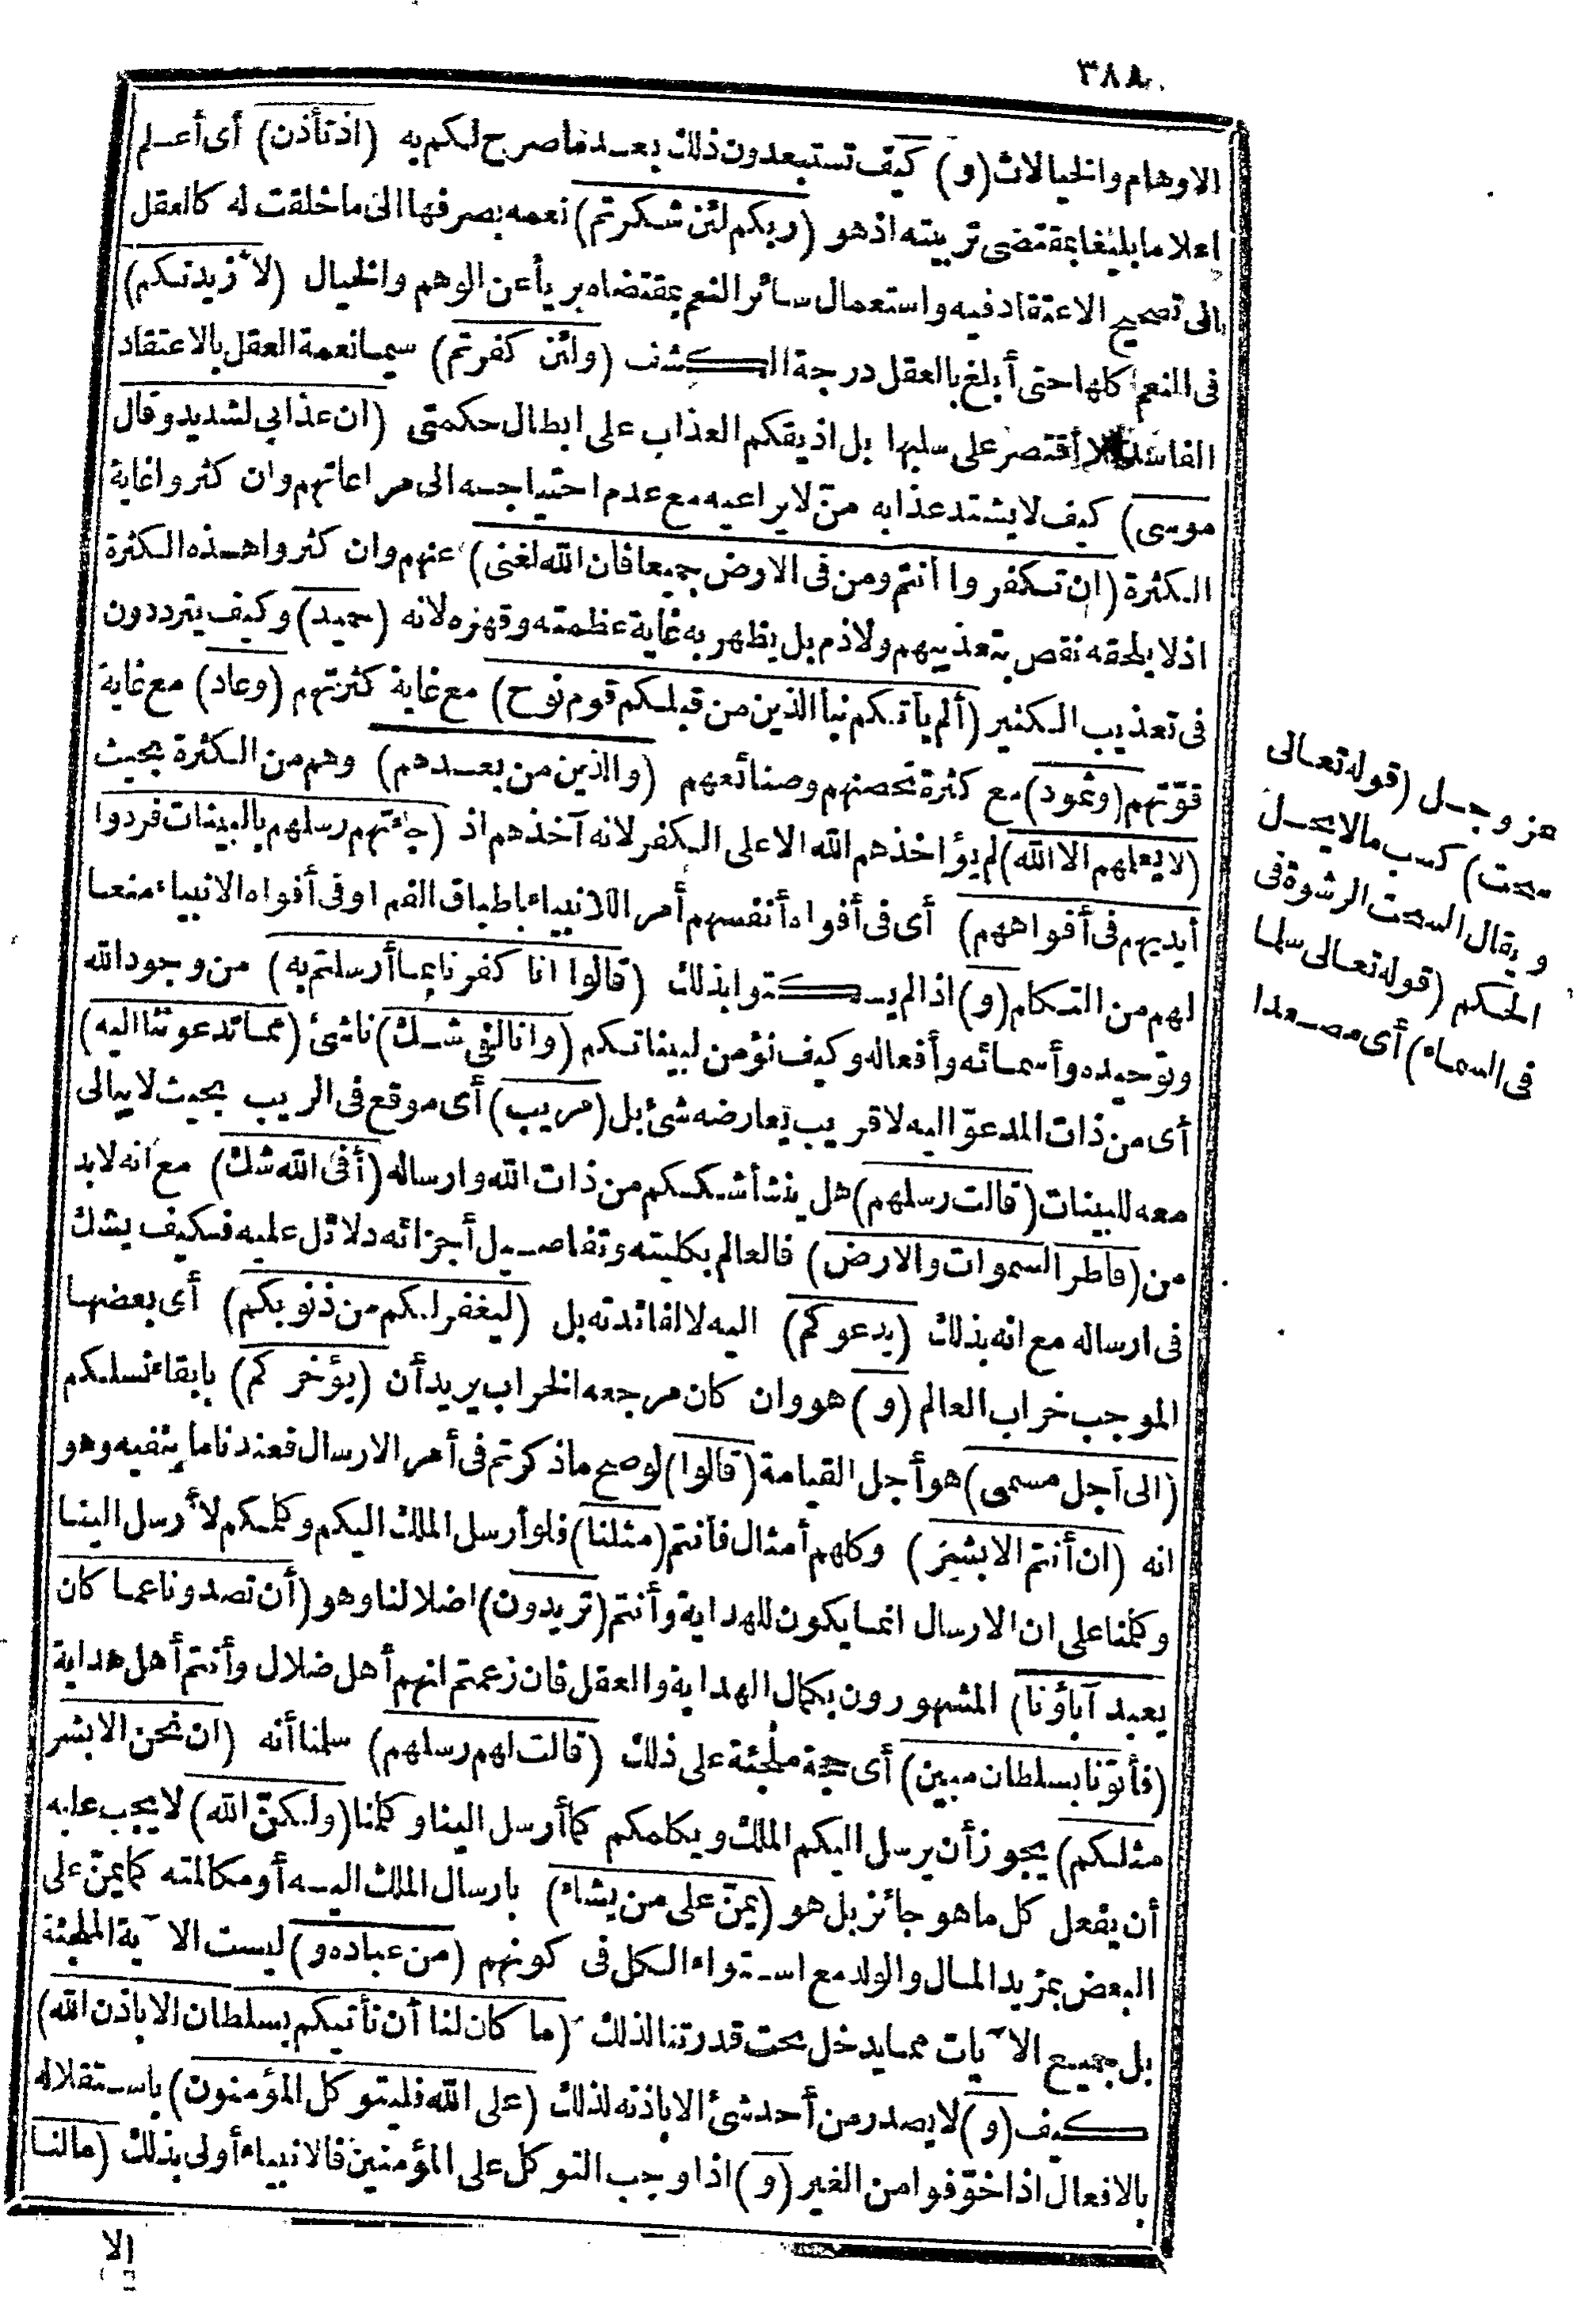 ٣٨٨
الاوهام والخيالات (و) كيف تستبعدون ذلك بعد ما صرح لكم به (اذ تأذن) أى أعلم
اعلاما بليغا بمقتضى تربيته اذ هو (ربكم لئن شكرتم) نعمه بصرفها الى ما خلقت له كالعقل
الى تصحيح الاعتقاد فيه واستعمال سائر النعم بمقتضاه بريأ عن الوهم والخيال (لأزيدنكم)
فى النعم كلها حتى أبلغ بالعقل درجة الكشف (ولئن كفرتم) سيما نعمة العقل بالاعتقاد
الفاسد لا أقتصر على سلبها بل اذيقكم العذاب على ابطال حكمتى (ان عذابى لشديد وقال
موسى) كيف لا يشتد عذابه من لا يراعيه مع عدم احتياجه الى مراعاتهم وان كثروا غاية
الكثرة (ان تكفروا أنتم ومن فى الارض جميعا فان الله لغنى) عنهم وان كثروا هذه الكثرة
اذ لا يلحقه نقص بتعذيبهم ولا ذم بل يظهر به غاية عظمته وقهره لانه (حميد) وكيف يترددون
فى تعذيب الكثير (ألم يأتكم نبأ الذين من قبلكم قوم نوح) مع غاية كثرتهم (وعاد) مع غاية
قوّتهم (وثمود) مع كثرة تحصنهم وصنائعهم (والذين من بعدهم) وهم من الكثرة بحيث
(لا يعلمهم الا الله) لم يؤاخذهم الله الا على الكفر لانه آخذهم اذ (جاءتهم رسلهم بالبينات فردوا
أيديهم فى أفواههم) أى فى أفواه أنفسهم أمر الانبياء باطباق الفم او فى أفواه الانبياء منعا
لهم من التكلم (و) اذ الم يسكتوا بذلك (قالوا انا كفرنا بما أرسلتم به) من وجود الله
وتوحيده وأسمائه وأفعاله وكيف نؤمن لبيناتكم (وانا لفى شك) ناشئ (مما تدعوننا اليه)
أى من ذات المدعوّ اليه لا قريب يعارضه شئ بل (مريب) أى موقع فى الريب بحيث لا يبالى
معه للبينات (قالت رسلهم) هل ينشأ شككم من ذات الله وارساله (أفى الله شك) مع انه لابد
من (فاطر السموات والارض) فالعالم بكليته وتفاصيل أجزائه دلائل عليه فكيف يشك
فى ارساله مع انه بذلك (يدعوكم) اليه لا لفائدته بل (ليغفر لكم من ذنوبكم) أى بعضها
الموجب خراب العالم (و) هو وان كان مرجعه الخراب يريد أن (يؤخركم) بابقاء نسلكم
(الى أجل مسمى) هو أجل القيامة (قالوا) لو صح ما ذكرتم فى أمر الارسال فعندنا ما ينفيه وهو
انه (ان أنتم الا بشر) وكلهم أمثال فأنتم (مثلنا) فلو أرسل الملك اليكم وكلمكم لأرسل الينا
وكلمنا على ان الارسال انما يكون للهداية وأنتم (تريدون) اضلالنا وهو (أن تصدونا عما كان
يعبد آباؤنا) المشهورون بكمال الهداية والعقل فان زعمتم انهم أهل ضلال وأنتم أهل هداية
(فأتونا بسلطان مبين) أى حجة ملجئة على ذلك (قالت لهم رسلهم) سلمنا أنه (ان نحن الا بشر
مثلكم) يجوز أن يرسل اليكم الملك ويكلمكم كما أرسل الينا وكلمنا (ولكنّ الله) لا يجب عليه
أن يفعل كل ما هو جائز بل هو (يمنّ على من يشاء) بارسال الملك اليه أو مكالمته كما يمنّ على
البعض بمزيد المال والولد مع استواء الكل فى كونهم (من عباده و) ليست الآية الملجئة
بل جميع الآيات مما يدخل تحت قدرتنا لذلك (ما كان لنا أن نأتيكم بسلطان الا باذن الله)
كيف (و) لا يصدر من أحد شئ الا باذنه لذلك (على الله فليتوكل المؤمنون) باستقلاله
بالافعال اذا خوّفوا من الغير (و) اذا وجب التوكل على المؤمنين فالانبياء أولى بذلك (مالنا
الا
عز وجل (قوله تعالى
سحت) كسب ما لا يحل
ويقال السحت الرشوة فى
الحكم (قوله تعالى سلما
فى السماء) أى مصعدا